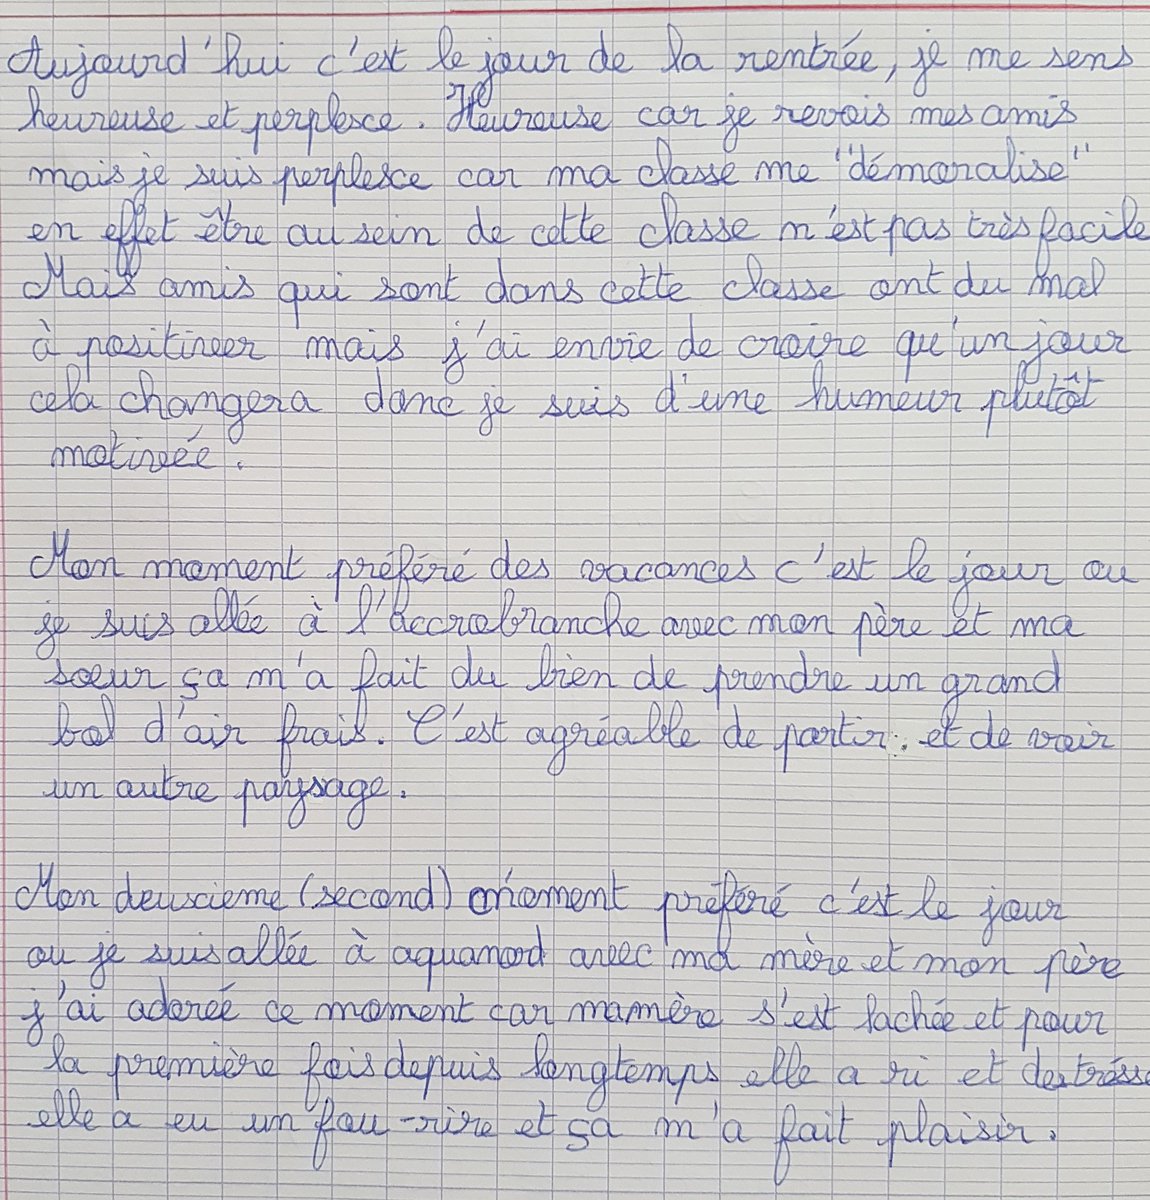 Aujourd'hui c'est le jour de la rentrée, je me sens
heureuse et perplexe. Heureuse car je revois mes amis
mais je suis perplexe car ma classe me "démoralise"
en effet être au sein de cette classe n'est pas très facile
Mais amis qui sont dans cette classe ont du mal
à positiveer mais j'ai envie de croire qu'un jour
cela changera donc je suis d'une humeur plutôt
motivée.
Mon moment préféré des vacances c'est le jour ou
je suis allée à l'Accrobranche avec mon père et ma
soeur ça m'a fait du bien de prendre un grand
bol d'air frais. C'est agréable de partir. et de voir
un autre paysage.
Mon deuxieme (second) moment préféré c'est le jour
ou je suis allée à aquanord avec ma mère et mon père
j'ai adorée ce moment car ma mère s'est lachée et pour
la première fois depuis longtemps elle a ri et
elle a eu un fou-rire et ça m'a fait plaisir.